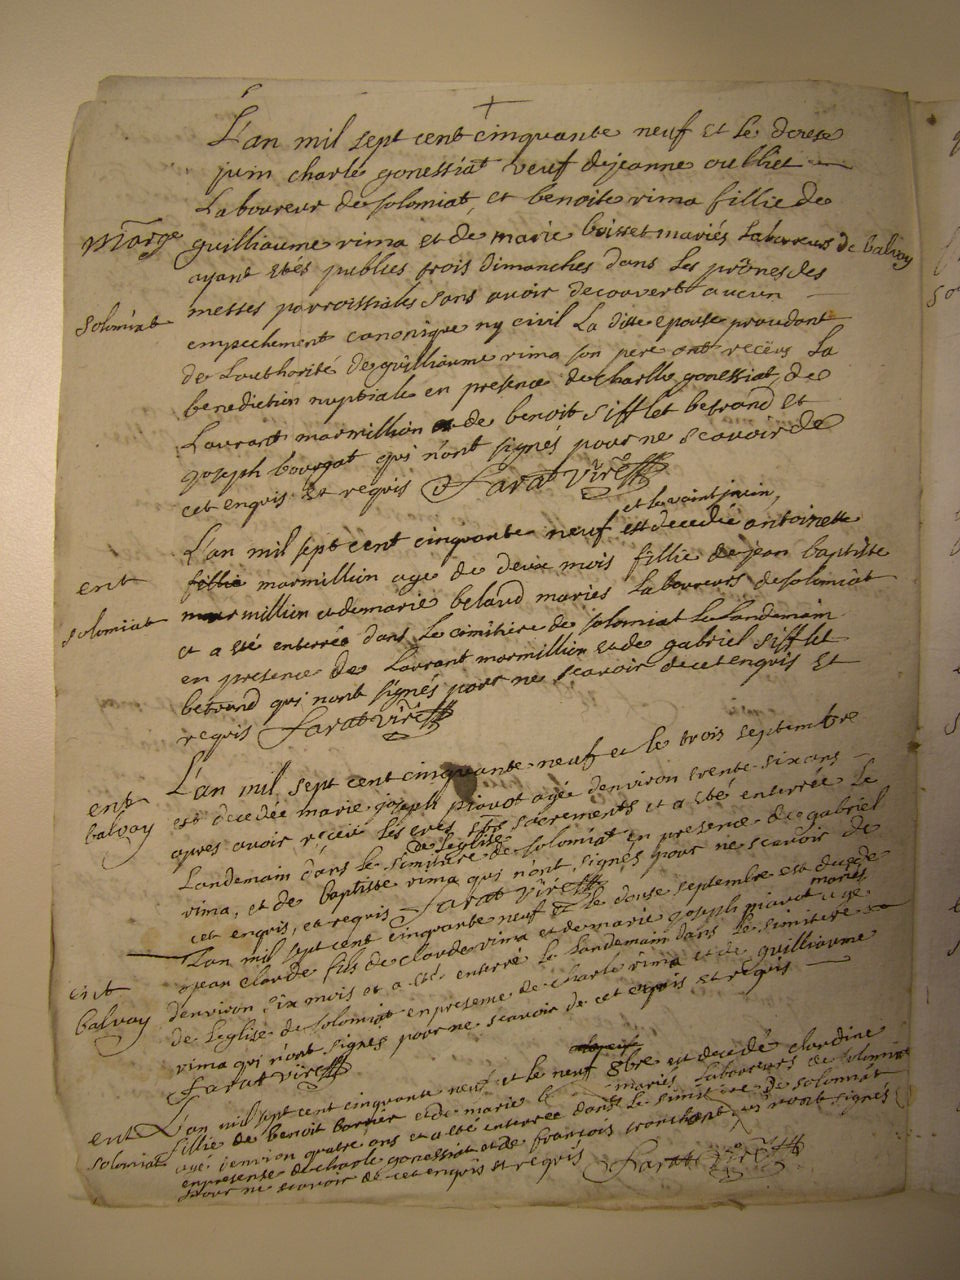 L'an mil sept cent cinquante neuf et le douse
juin charle gonessiat veuf de jeanne oulliet
Laboureur de solomiat, et benoite rima fillie de
mariage guilliaume rima et de marie boisset mariés Laboureurs de balvay
ayant etés publies trois dimanches dans les prônes des
solomiat messes parroissiales sans avoir decouvert aucun
empechement canonique ny civil La ditte epouse procedant
de Lauthorité de guilliaume rima son pere ont recëus La
benediction nuptiale en presence de charle gonessiat, de
Laurant marmillion de benoit sifflet betrand et
joseph bourgat qui n'ont signés pour ne scavoir de
cet enquis et requis Sarat vire
et le vaint juin,
L'an mil sept cent cinquante neuf est decedée antoinette
ent marmillion age de deux mois fillie de jean baptiste
solomiat marmillion et de marie betand mariés Laboureurs de solomiat
et a eté enterrée dans Le cimitière de solomiat Le Landemain
en presence de Laurant marmillion et de gabriel sifflet
betrand qui nont signés pour ne scavoir de cet enquis et
requis Sarat vire
L'an mil sept cent cinquante neuf et le trois septembre
ent est decedée marie joseph piavot agée denviron trente six ans
balvay apres avoir recëu les sacrements et a eté enterrée Le
de Leglise
Landemain dans le simitière de solomiat en presence de gabriel
rima, et de baptiste rima qui n'ont signés pour ne scavoir de
cet enquis, et requis Sarat vire
L'an mil sept cent cinquante neuf et le douse septembre est decede
mariés
jean claude fils de claude rima et de marie joseph piavot age
ent denviron six mois et a eté enterré le Landemain dans Le simitere
balvay de Leglise de solomiat en presence de charle rima et de guilliaume
rima qui n'ont signés pour ne scavoir de cet enquis et requis
Sarat vire
L'an mil sept cent cinquante neuf et le neuf 8bre est decedé claudine
ent fillie de benoit et de marie mariés Laboureurs de solomiat
solomiat age denvion quatre ans et a eté enterrée dans Le simitiere de solomiat
en presense de charle gonessiat et de françois qui n'ont signés
pour ne scavoir de cet enquis et requis Sarat vire